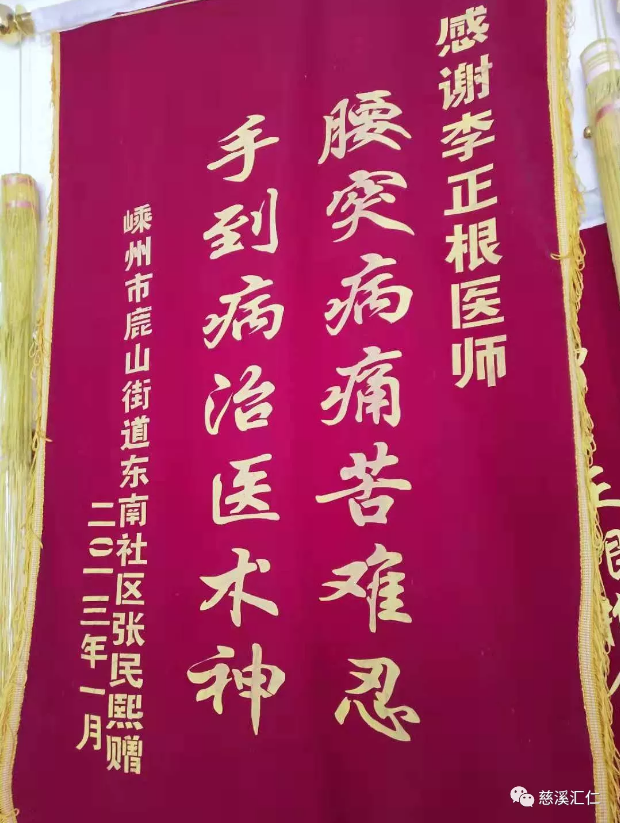 感谢李正根医师
腰突病痛苦难忍
手到病治医术神
嵊州市鹿山街道东南社区张民熙赠
二〇一三年一月
慈溪汇仁